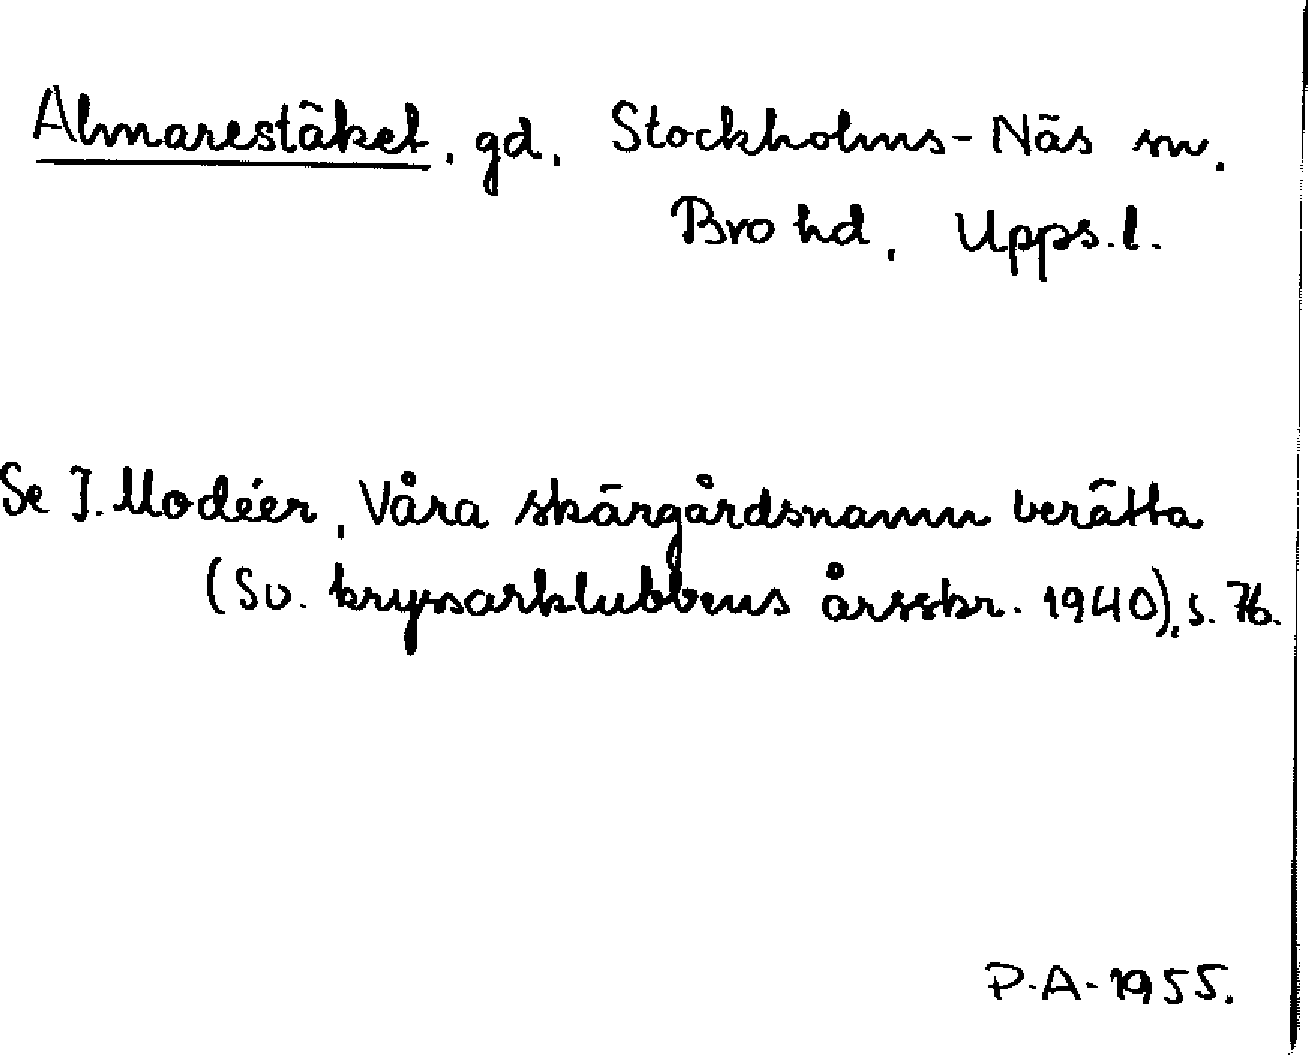 Almarestäket, gd, Stockholms-Näs sn.
Bro hd, Upps.l.
Se I. Modéer, Våra skärgårdsnamn berätta
(Sv. kryssarklubbens årsskr. 1940), s. 76.
P.A. 1955.